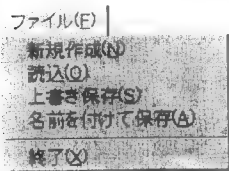 ファイル(E)
新規作成(N)
読込(O)
上書き保存(S)
名前を付けて保存(A)
終了(X)